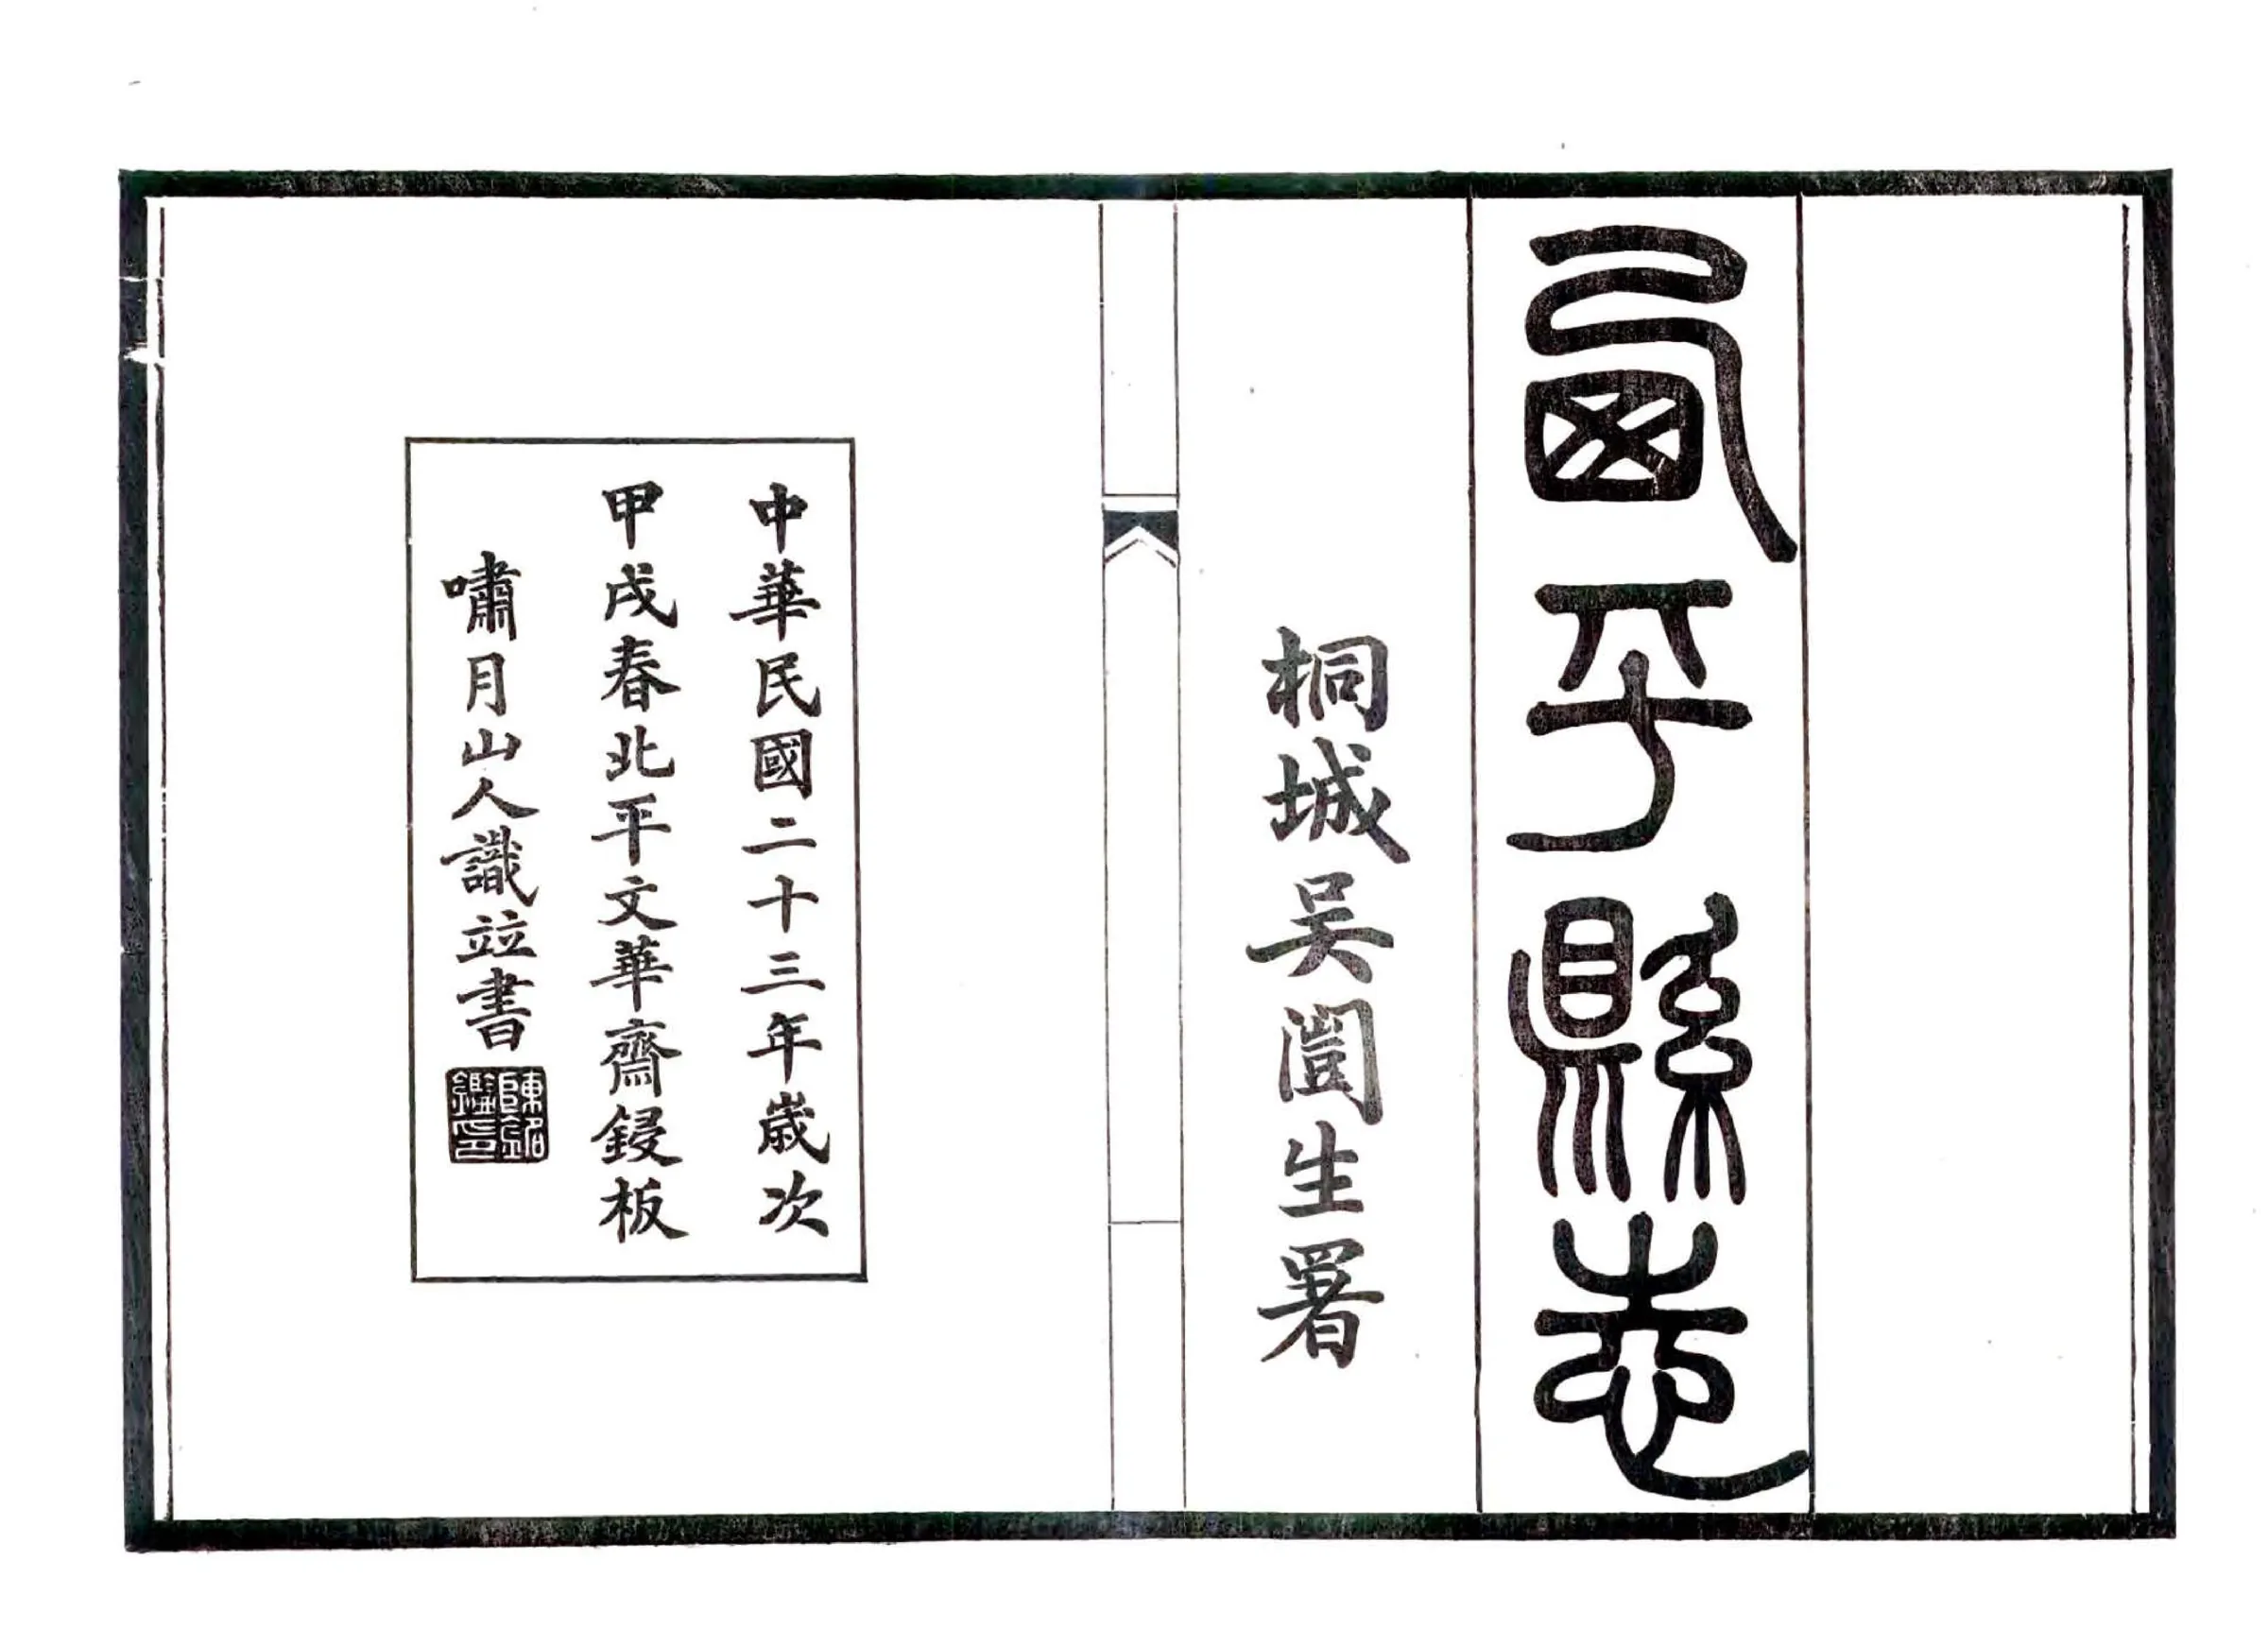 西平縣志
桐城吳闓生署
中華民國二十三年歲次
甲戌春北平文華齋鋟板
嘯月山人識竝書
陳銘鑑印